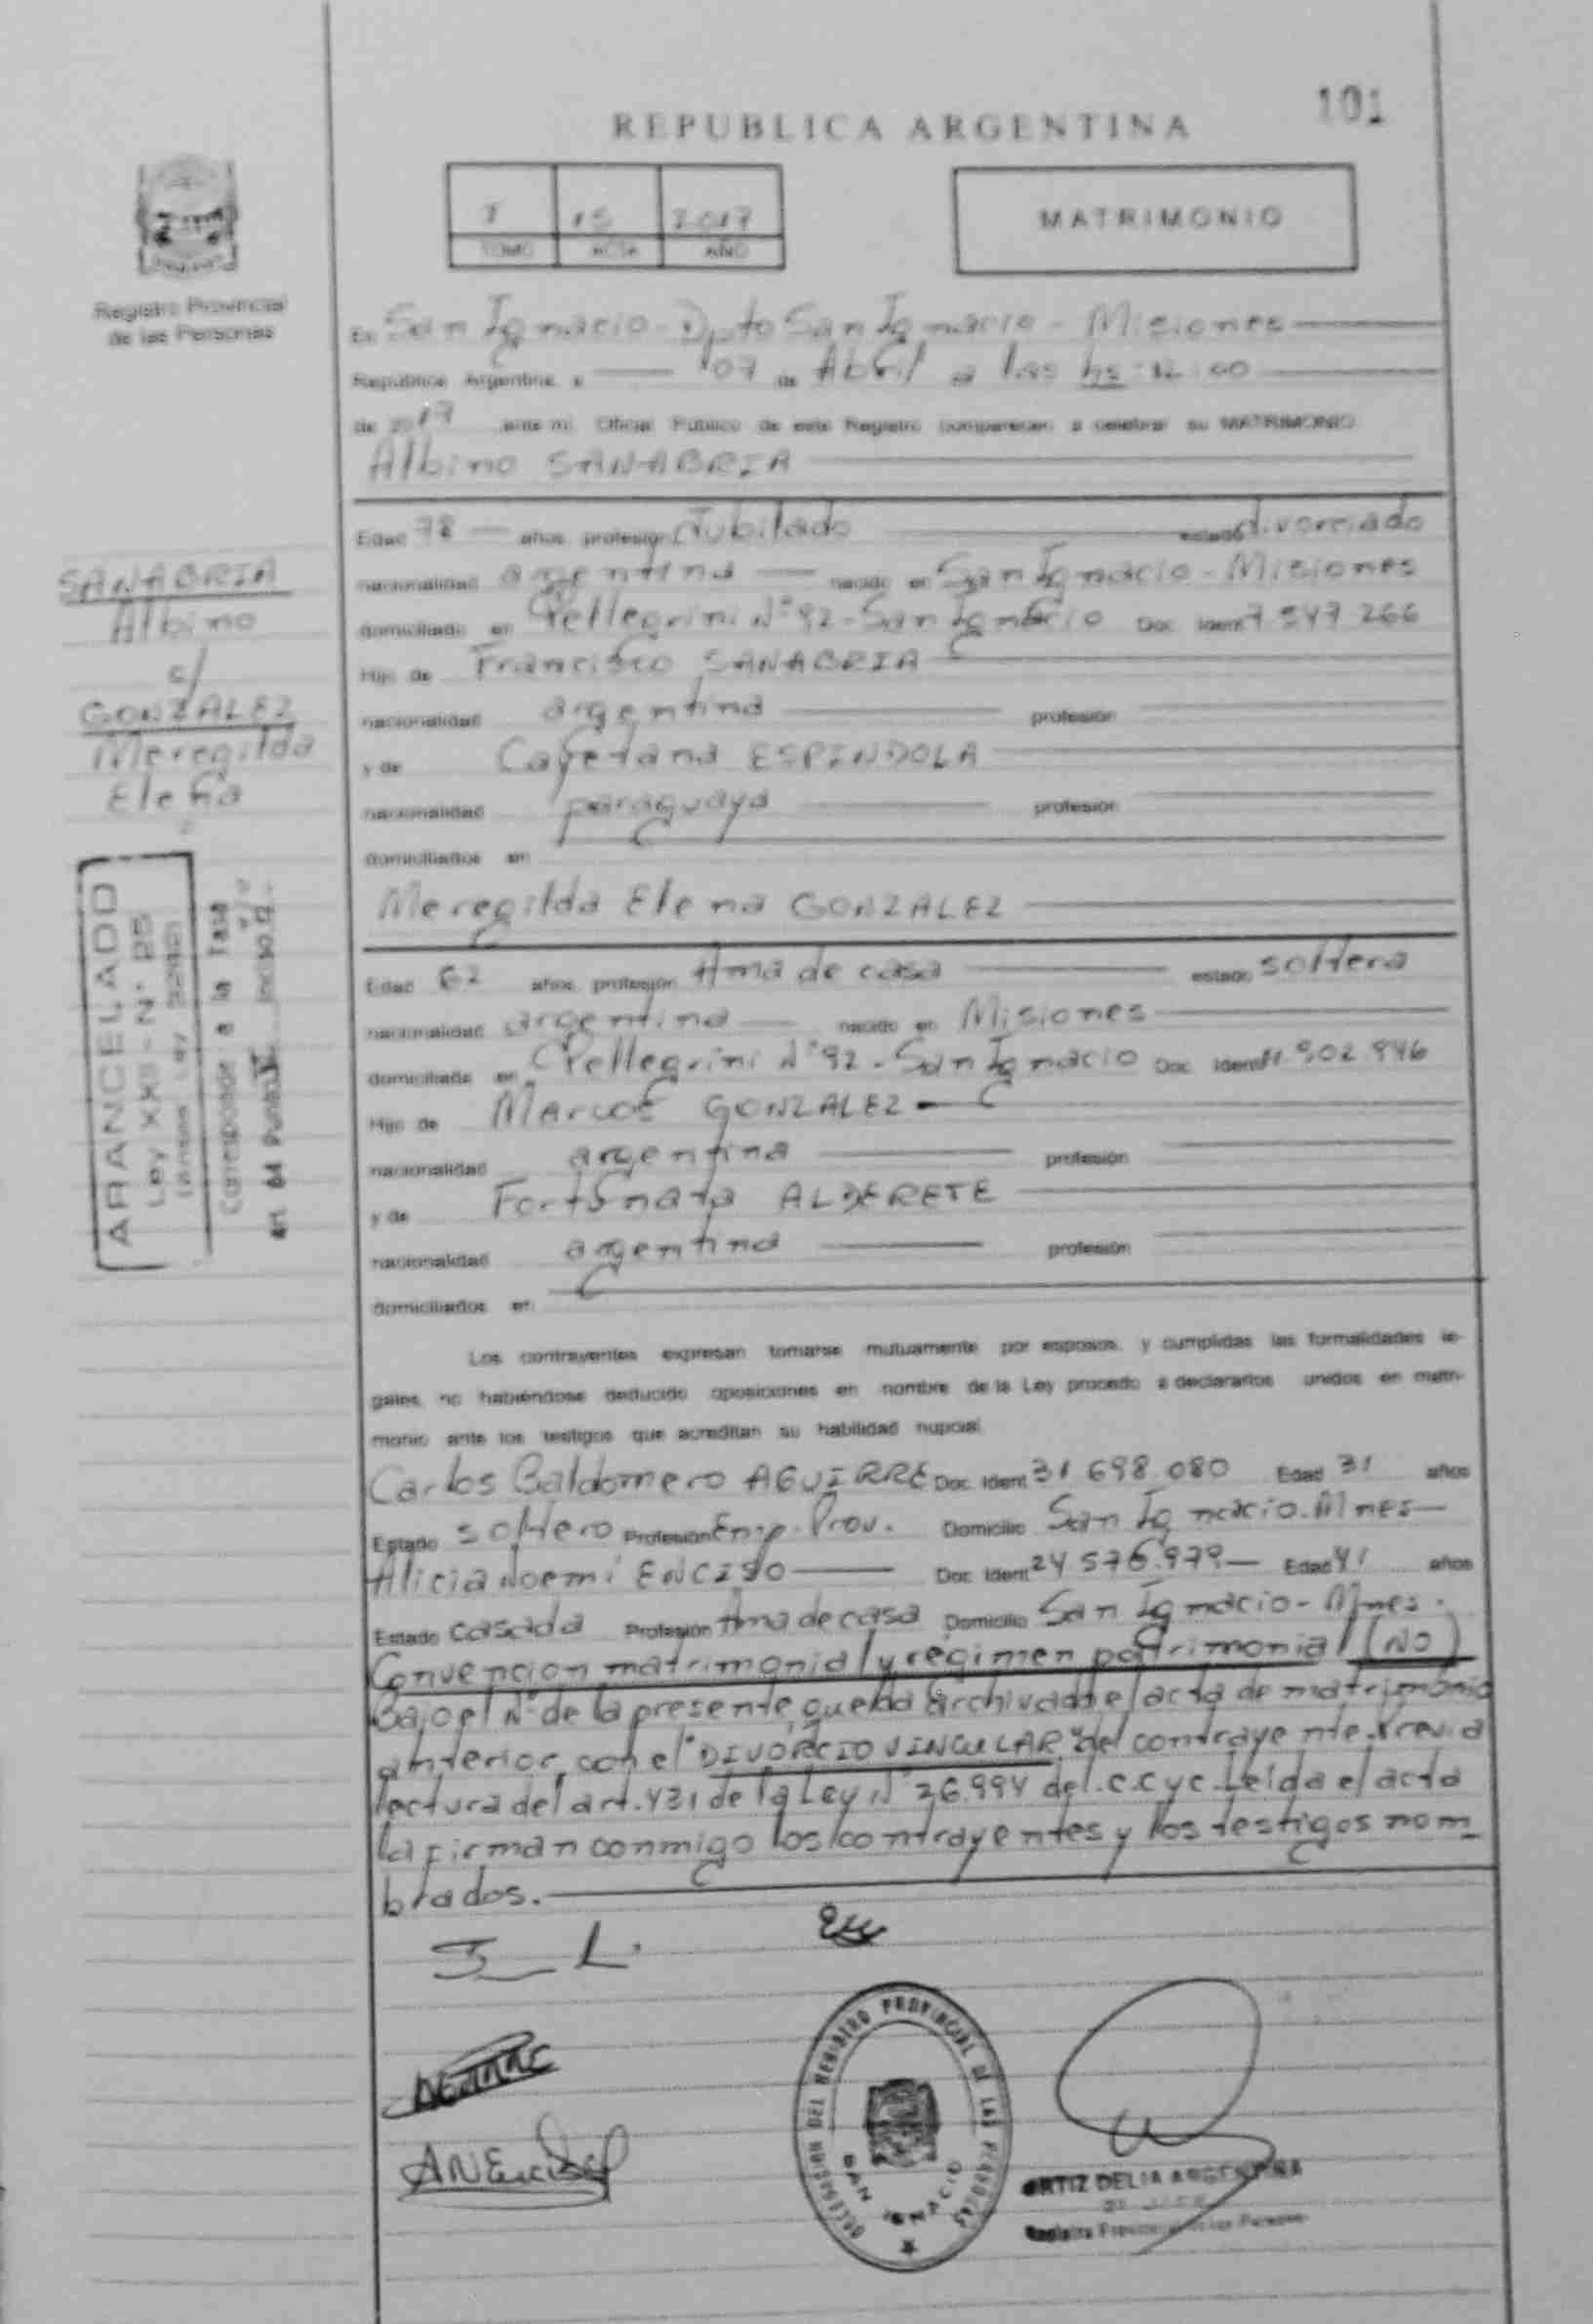 101
REPUBLICA ARGENTINA
I 15 2017
TOMO ACTA AÑO
MATRIMONIO
Registro Provincial
de las Personas
En San Ignacio - Dpto San Ignacio - Misiones
República Argentina a 07 de Abril a las hs: 12:00
de 2017 ante mi Oficial Público de este Registro comparecen a celebrar su MATRIMONIO
Albino SANABRIA
Edad 78 años profesión Jubilado estado divorciado
nacionalidad argentina nacido en San Ignacio - Misiones
domiciliado en Pellegrini N° 92 - San Ignacio Doc Ident 7 547 266
Hijo de Francisco SANABRIA
nacionalidad argentina profesión
y de Cayetana ESPINDOLA
nacionalidad paraguaya profesión
domiciliados en
Meregilda Elena GONZALEZ
Edad 62 años profesión Ama de casa estado soltera
nacionalidad argentina nacido en Misiones
domiciliada en Pellegrini N° 92 - San Ignacio Doc Ident 11.902.946
Hijo de Marcos GONZALEZ
nacionalidad argentina profesión
y de Fortunata ALDERETE
nacionalidad argentina profesión
domiciliados en
SANABRIA
Albino
c/
GONZALEZ
Meregilda
Elena
ARANCELADO
Ley XXII - N°
Corresponde a la Tasa
Art. 04 Punto Inciso
Los contrayentes expresan tomarse mutuamente por esposos, y cumplidas las formalidades le-
gales, no habiéndose deducido oposiciones en nombre de la Ley procedo a declararlos unidos en matri-
monio ante los testigos que acreditan su habilidad nupcial.
Carlos Baldomero AGUIRRE Doc. Ident 31 698 080 Edad 31 años
Estado soltero Profesión Emp. Prov. Domicilio San Ignacio. Mnes
Alicia Noemi ENCISO Doc. Ident 24 576.979 Edad 41 años
Estado casada Profesión Ama de casa Domicilio San Ignacio - Mnes.
Convencion matrimonial y régimen patrimonial (NO)
Bajo el N° de la presente queda archivada el acta de matrimonio
anterior, con el "DIVORCIO VINCULAR" del contrayente. Previa
lectura del art. 431 de la Ley N° 26.994 del C.C y C. Leída el acta
la firman conmigo los contrayentes y los testigos nom-
brados.
DELEGACION DEL REGISTRO PROVINCIAL DE LAS PERSONAS
SAN IGNACIO
ORTIZ DELIA ARGENTINA
Registro Provincial de las Personas